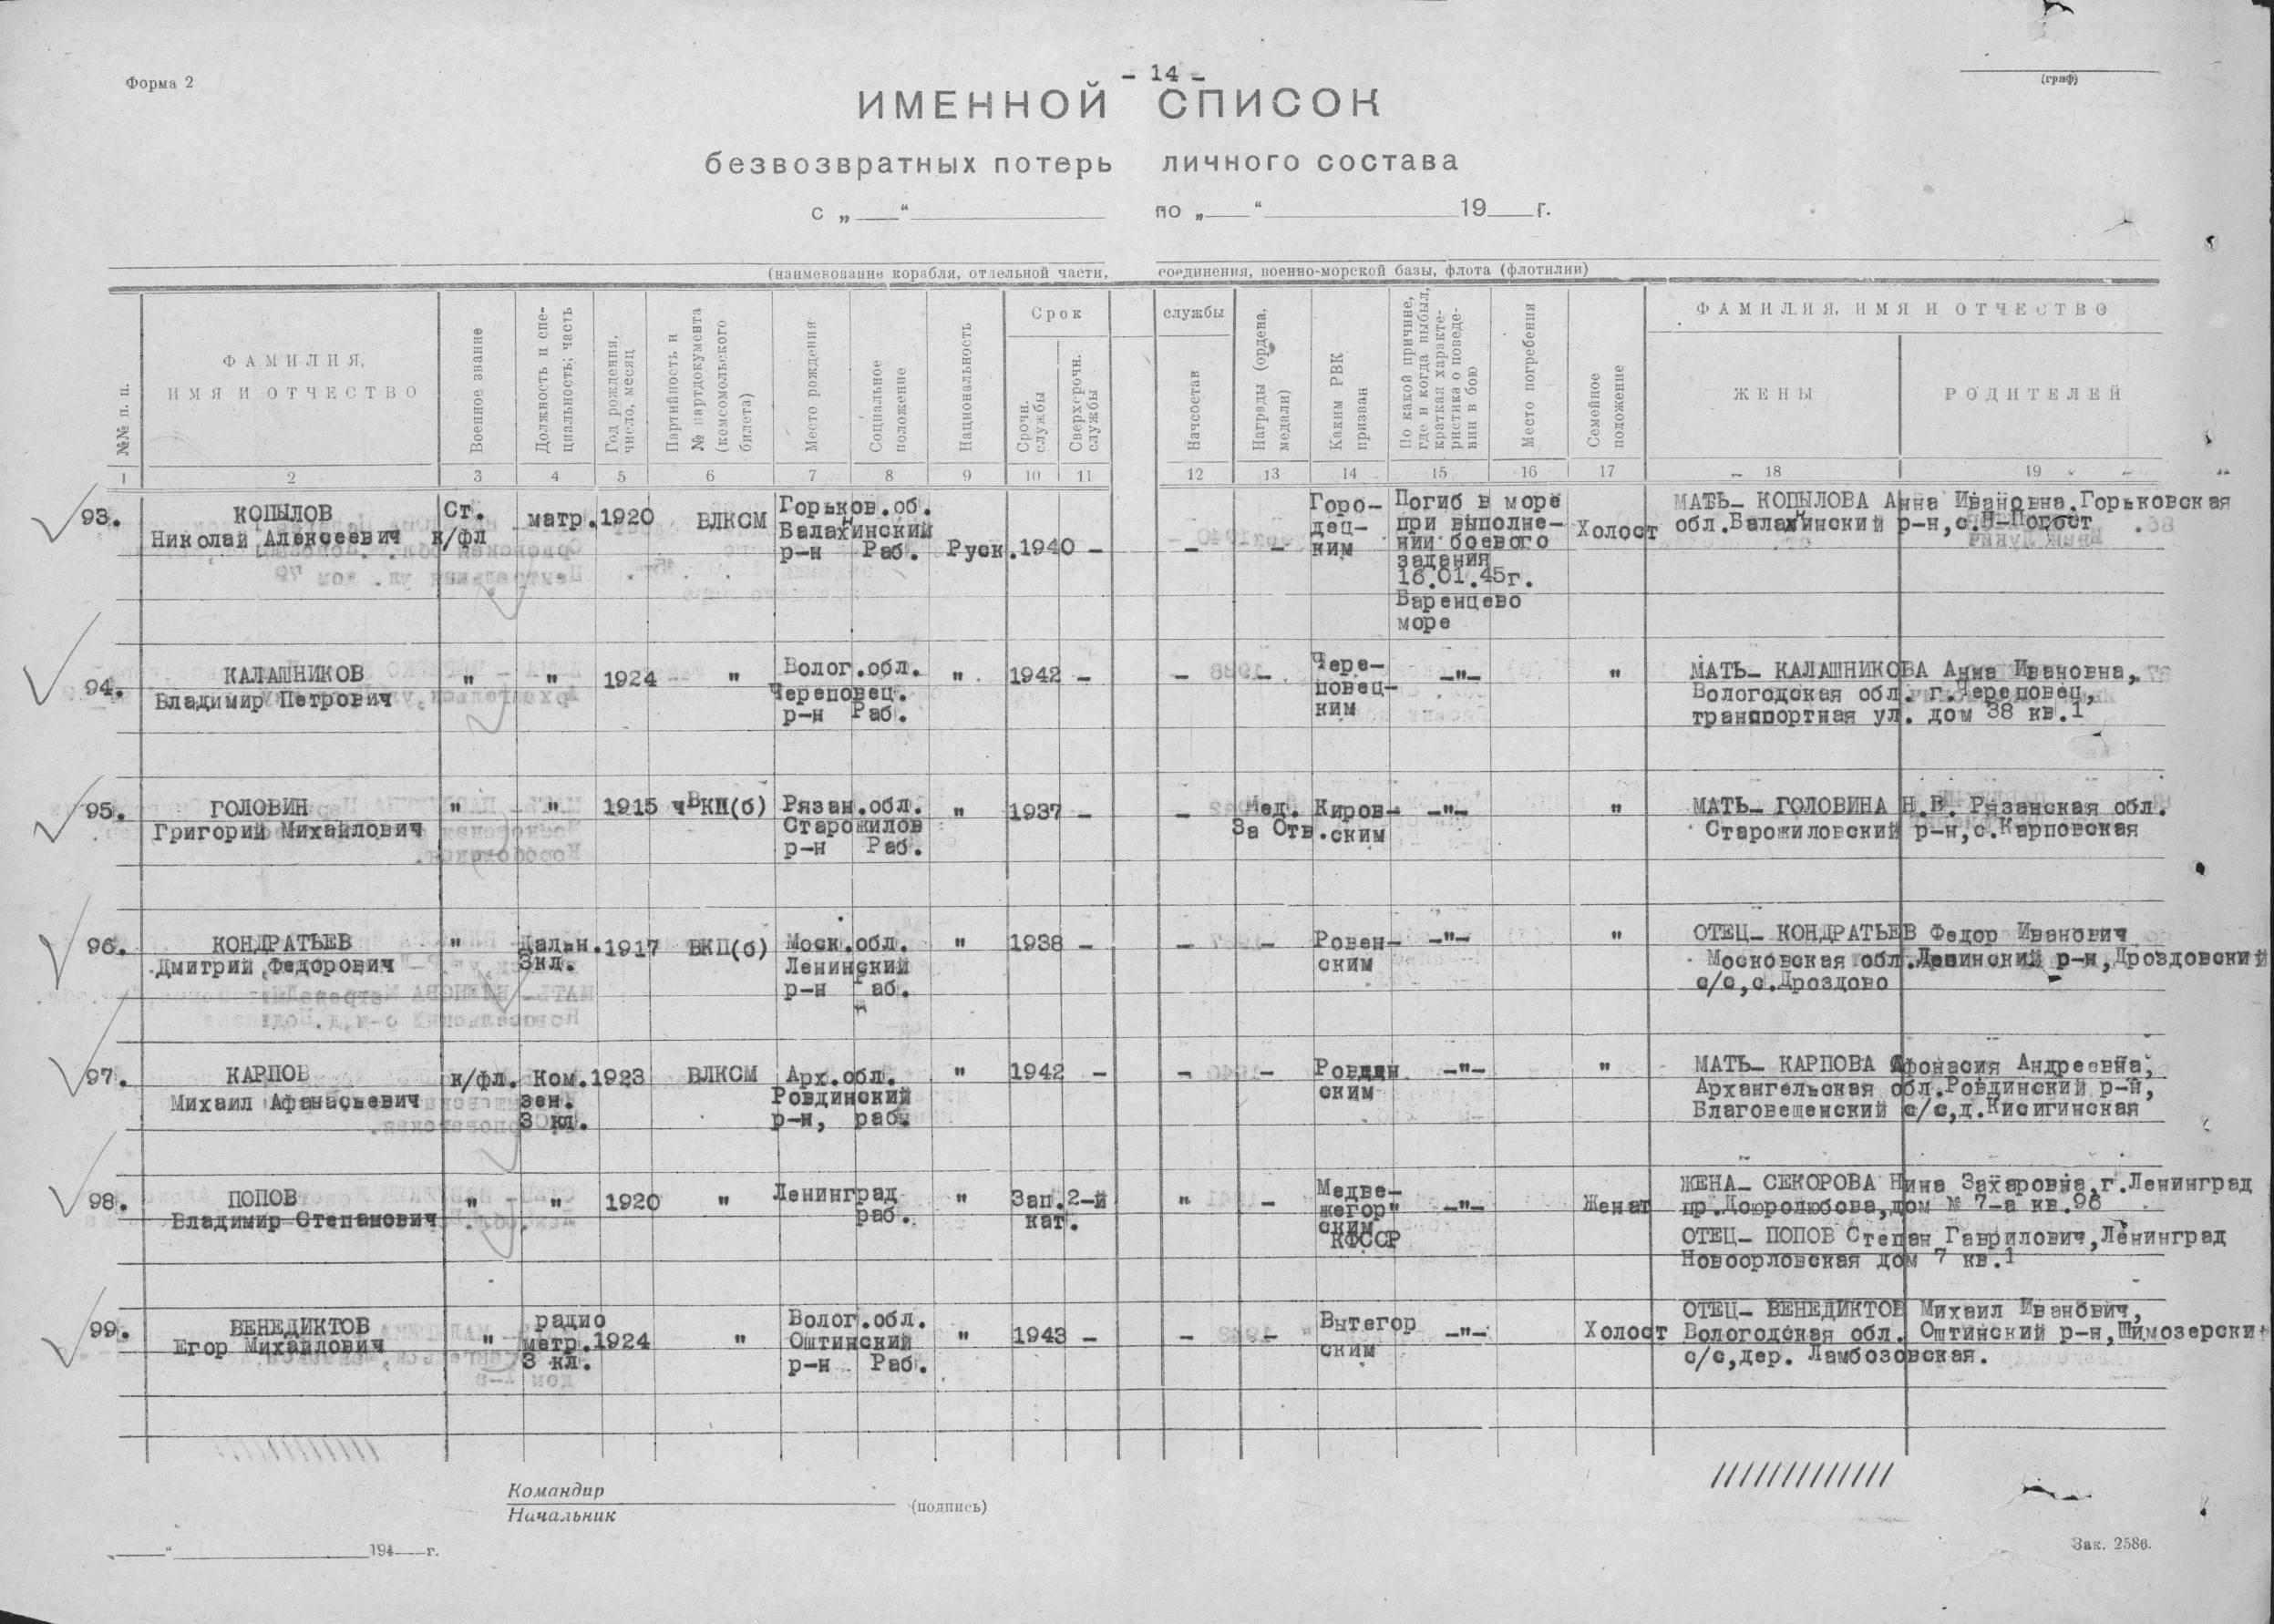 Форма 2
- 14 -
(гриф)
ИМЕННОЙ СПИСОК
безвозвратных потерь личного состава
с „ “ по „ “ 19 г.
(наименование корабля, отдельной части, соединения, военно-морской базы, флота (флотилии)
№№ п. п.
ФАМИЛИЯ,
ИМЯ И ОТЧЕСТВО
Военное звание
Должность и спе-
циальность; часть
Год рождения,
число, месяц
Партийность и
№ партдокумента
(комсомольского
билета)
Место рождения
Социальное
положение
Национальность
Срок службы
Срочн.
службы
Сверхсрочн.
службы
Начсостав
Награды (ордена,
медали)
Каким РВК
призван
По какой причине,
где и когда выбыл,
краткая характе-
ристика о поведе-
нии в бою
Место погребения
Семейное
положение
ФАМИЛИЯ, ИМЯ И ОТЧЕСТВО
ЖЕНЫ
РОДИТЕЛЕЙ
1 2 3 4 5 6 7 8 9 10 11 12 13 14 15 16 17 18 19
93.
КОПЫЛОВ
Николай Алексеевич
Ст.
к/фл
матр.
1920
ВЛКСМ
Горьков.об.
Балахнинский
р-н Раб.
Руск.
1940 -
- -
Горо-
дец-
ким
Погиб в море
при выполне-
нии боевого
задания
16.01.45г.
Баренцево
море
Холост
МАТЬ- КОПЫЛОВА Анна Ивановна.Горьковская
обл.Балахнинский р-н,с.Н-Погост
94.
КАЛАШНИКОВ
Владимир Петрович
" " 1924 "
Волог.обл.
Череповец.
р-н Раб.
" 1942 -
- -
Чере-
повец-
ким
-"-
"
МАТЬ- КАЛАШНИКОВА Анна Ивановна,
Вологодская обл. г.Череповец,
транспортная ул. дом 38 кв.1
95.
ГОЛОВИН
Григорий Михайлович
" " 1915 чВКП(б)
Рязан.обл.
Старожилов
р-н Раб.
" 1937 -
-
Мед.
За Отв.
Киров-
ским
-"-
"
МАТЬ- ГОЛОВИНА Н.В. Рязанская обл.
Старожиловский р-н,с.Карповская
96.
КОНДРАТЬЕВ
Дмитрий Федорович
"
Дальн.
3кл.
1917 ВКП(б)
Моск.обл.
Ленинский
р-н Раб.
" 1938 -
- -
Ровен-
ским
-"-
"
ОТЕЦ- КОНДРАТЬЕВ Федор Иванович
Московская обл.Ленинский р-н,Дроздовский
с/с,с.Дроздово
97.
КАРПОВ
Михаил Афанасьевич
к/фл.
Ком.
зен.
3 кл.
1923 ВЛКСМ
Арх.обл.
Ровдинский
р-н, раб.
" 1942 -
- -
Ровдин
ским
-"-
"
МАТЬ- КАРПОВА Афонасия Андреевна,
Архангельская обл.Ровдинский р-н,
Благовещенский с/с,д.Кисигинская
98.
ПОПОВ
Владимир Степанович
" " 1920 "
Ленинград
раб.
"
Зап.2-й
кат.
" -
Медве-
жегор"
ским
КФССР
-"-
Женат
ЖЕНА- СЕКОРОВА Нина Захаровна,г.Ленинград
пр.Доюролюбова,дом № 7-а кв.96
ОТЕЦ- ПОПОВ Степан Гаврилович,Ленинград
Новоорловская дом 7 кв.1
99.
ВЕНЕДИКТОВ
Егор Михайлович
"
радио
матр.
3 кл.
1924 "
Волог.обл.
Оштинский
р-н Раб.
" 1943 -
- -
Вытегор
ским
-"-
Холост
ОТЕЦ- ВЕНЕДИКТОВ Михаил Иванович,
Вологодская обл. Оштинский р-н,Шимозерски
с/с,дер. Ламбозовская.
Командир
Начальник
(подпись)
„ “ 194 г.
Зак. 2586.